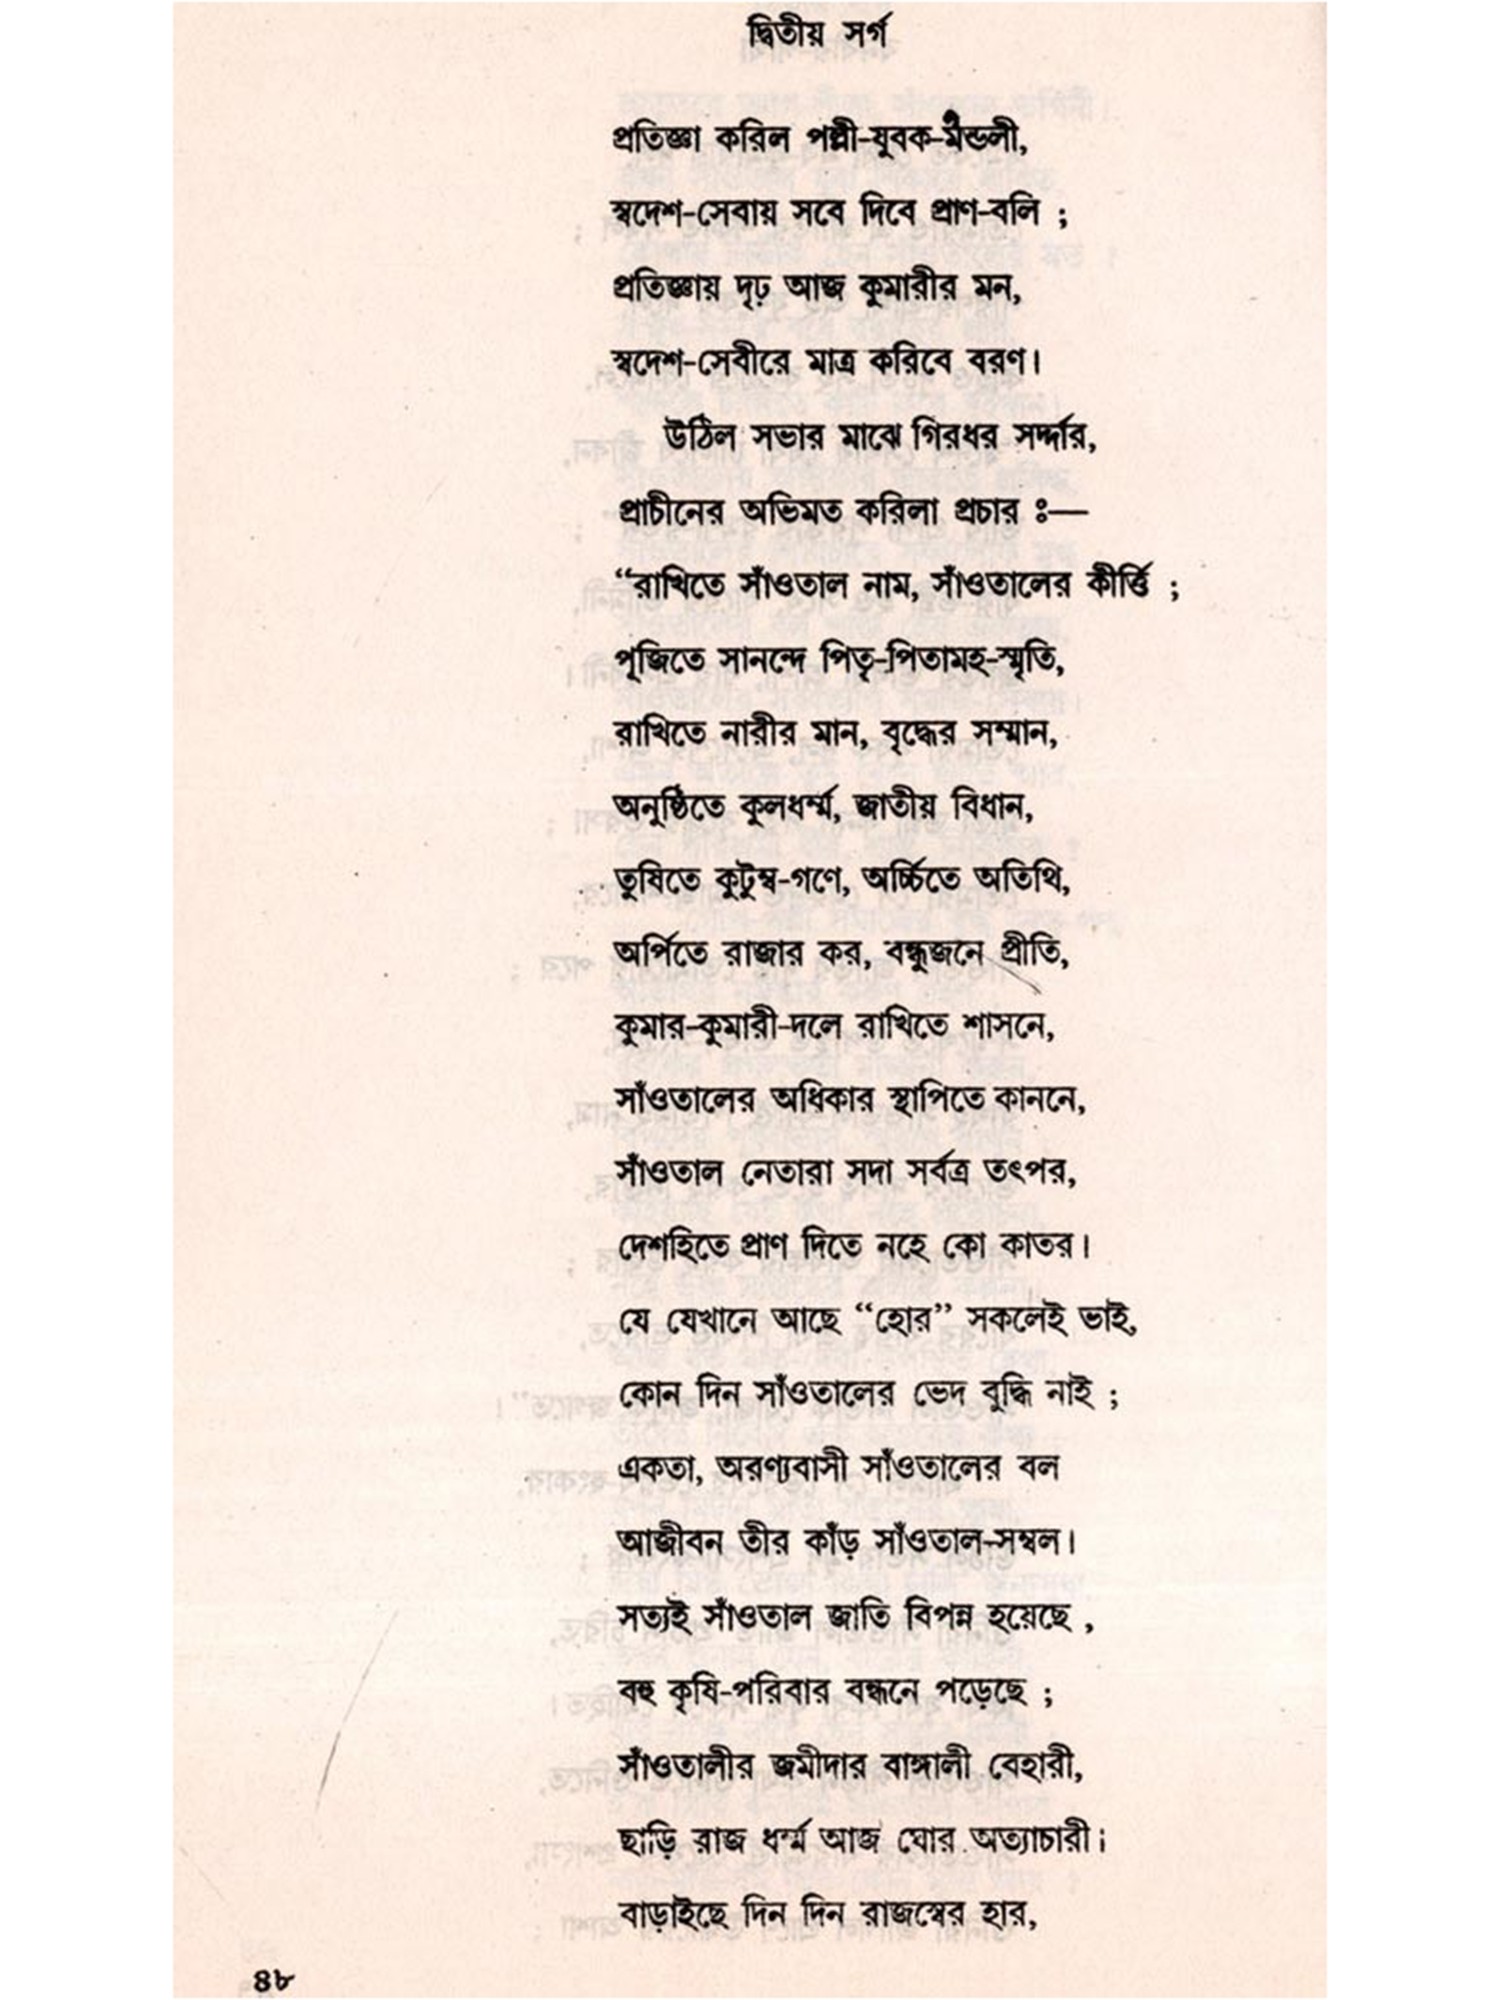 দ্বিতীয় সর্গ
প্রতিজ্ঞা করিল পল্লী-যুবক-মন্ডলী,
স্বদেশ-সেবায় সবে দিবে প্রাণ-বলি ;
প্রতিজ্ঞায় দৃঢ় আজ কুমারীর মন,
স্বদেশ-সেবীরে মাত্র করিবে বরণ।
উঠিল সভার মাঝে গিরধর সর্দ্দার,
প্রাচীনের অভিমত করিলা প্রচার ঃ—
“রাখিতে সাঁওতাল নাম, সাঁওতালের কীর্ত্তি ;
পূজিতে সানন্দে পিতৃ-পিতামহ-স্মৃতি,
রাখিতে নারীর মান, বৃদ্ধের সম্মান,
অনুষ্ঠিতে কুলধর্ম্ম, জাতীয় বিধান,
তুষিতে কুটুম্ব-গণে, অর্চ্চিতে অতিথি,
অর্পিতে রাজার কর, বন্ধুজনে প্রীতি,
কুমার-কুমারী-দলে রাখিতে শাসনে,
সাঁওতালের অধিকার স্থাপিতে কাননে,
সাঁওতাল নেতারা সদা সর্বত্র তৎপর,
দেশহিতে প্রাণ দিতে নহে কো কাতর।
যে যেখানে আছে “হোর” সকলেই ভাই,
কোন দিন সাঁওতালের ভেদ বুদ্ধি নাই ;
একতা, অরণ্যবাসী সাঁওতালের বল
আজীবন তীর কাঁড় সাঁওতাল-সম্বল।
সত্যই সাঁওতাল জাতি বিপন্ন হয়েছে ,
বহু কৃষি-পরিবার বন্ধনে পড়েছে ;
সাঁওতালীর জমীদার বাঙ্গালী বেহারী,
ছাড়ি রাজ ধর্ম্ম আজ ঘোর অত্যাচারী।
বাড়াইছে দিন দিন রাজস্বের হার,
৪৮